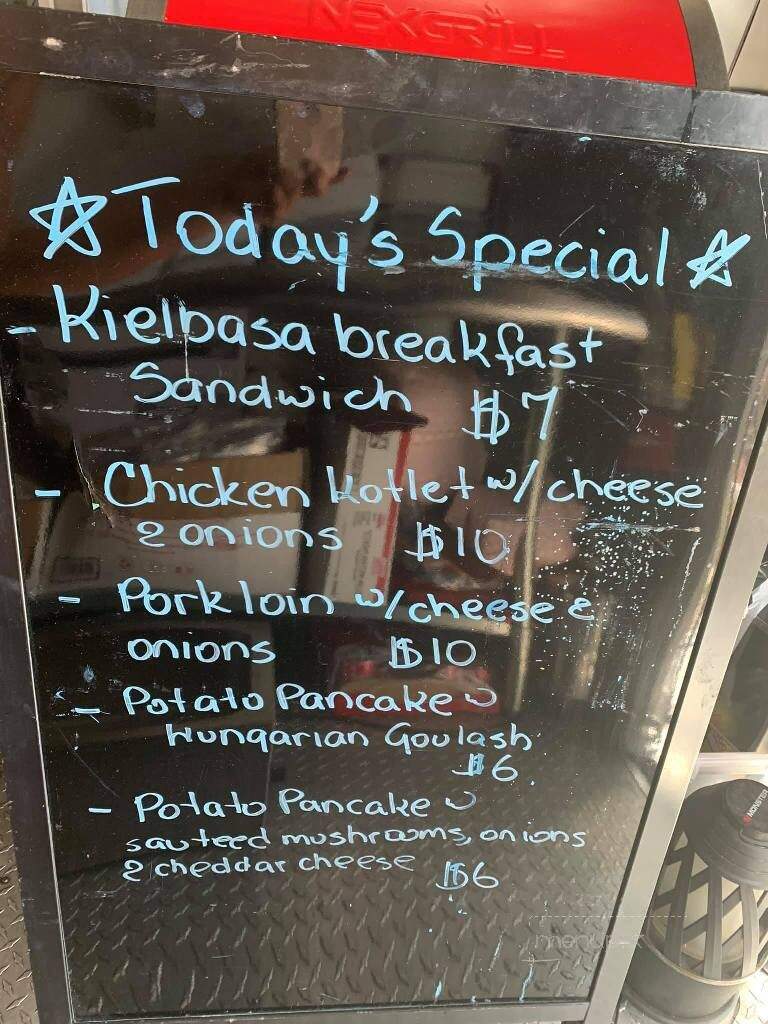 NEXGRILL
☆ Today's Special ☆
- Kielbasa breakfast
Sandwich $7
- Chicken Kotlet w/ cheese
& onions $10
- Pork loin w/cheese &
onions $10
- Potato Pancake w
Hungarian Goulash
$6
- Potato Pancake w
sauteed mushrooms, onions
& cheddar cheese $6
MONSTER